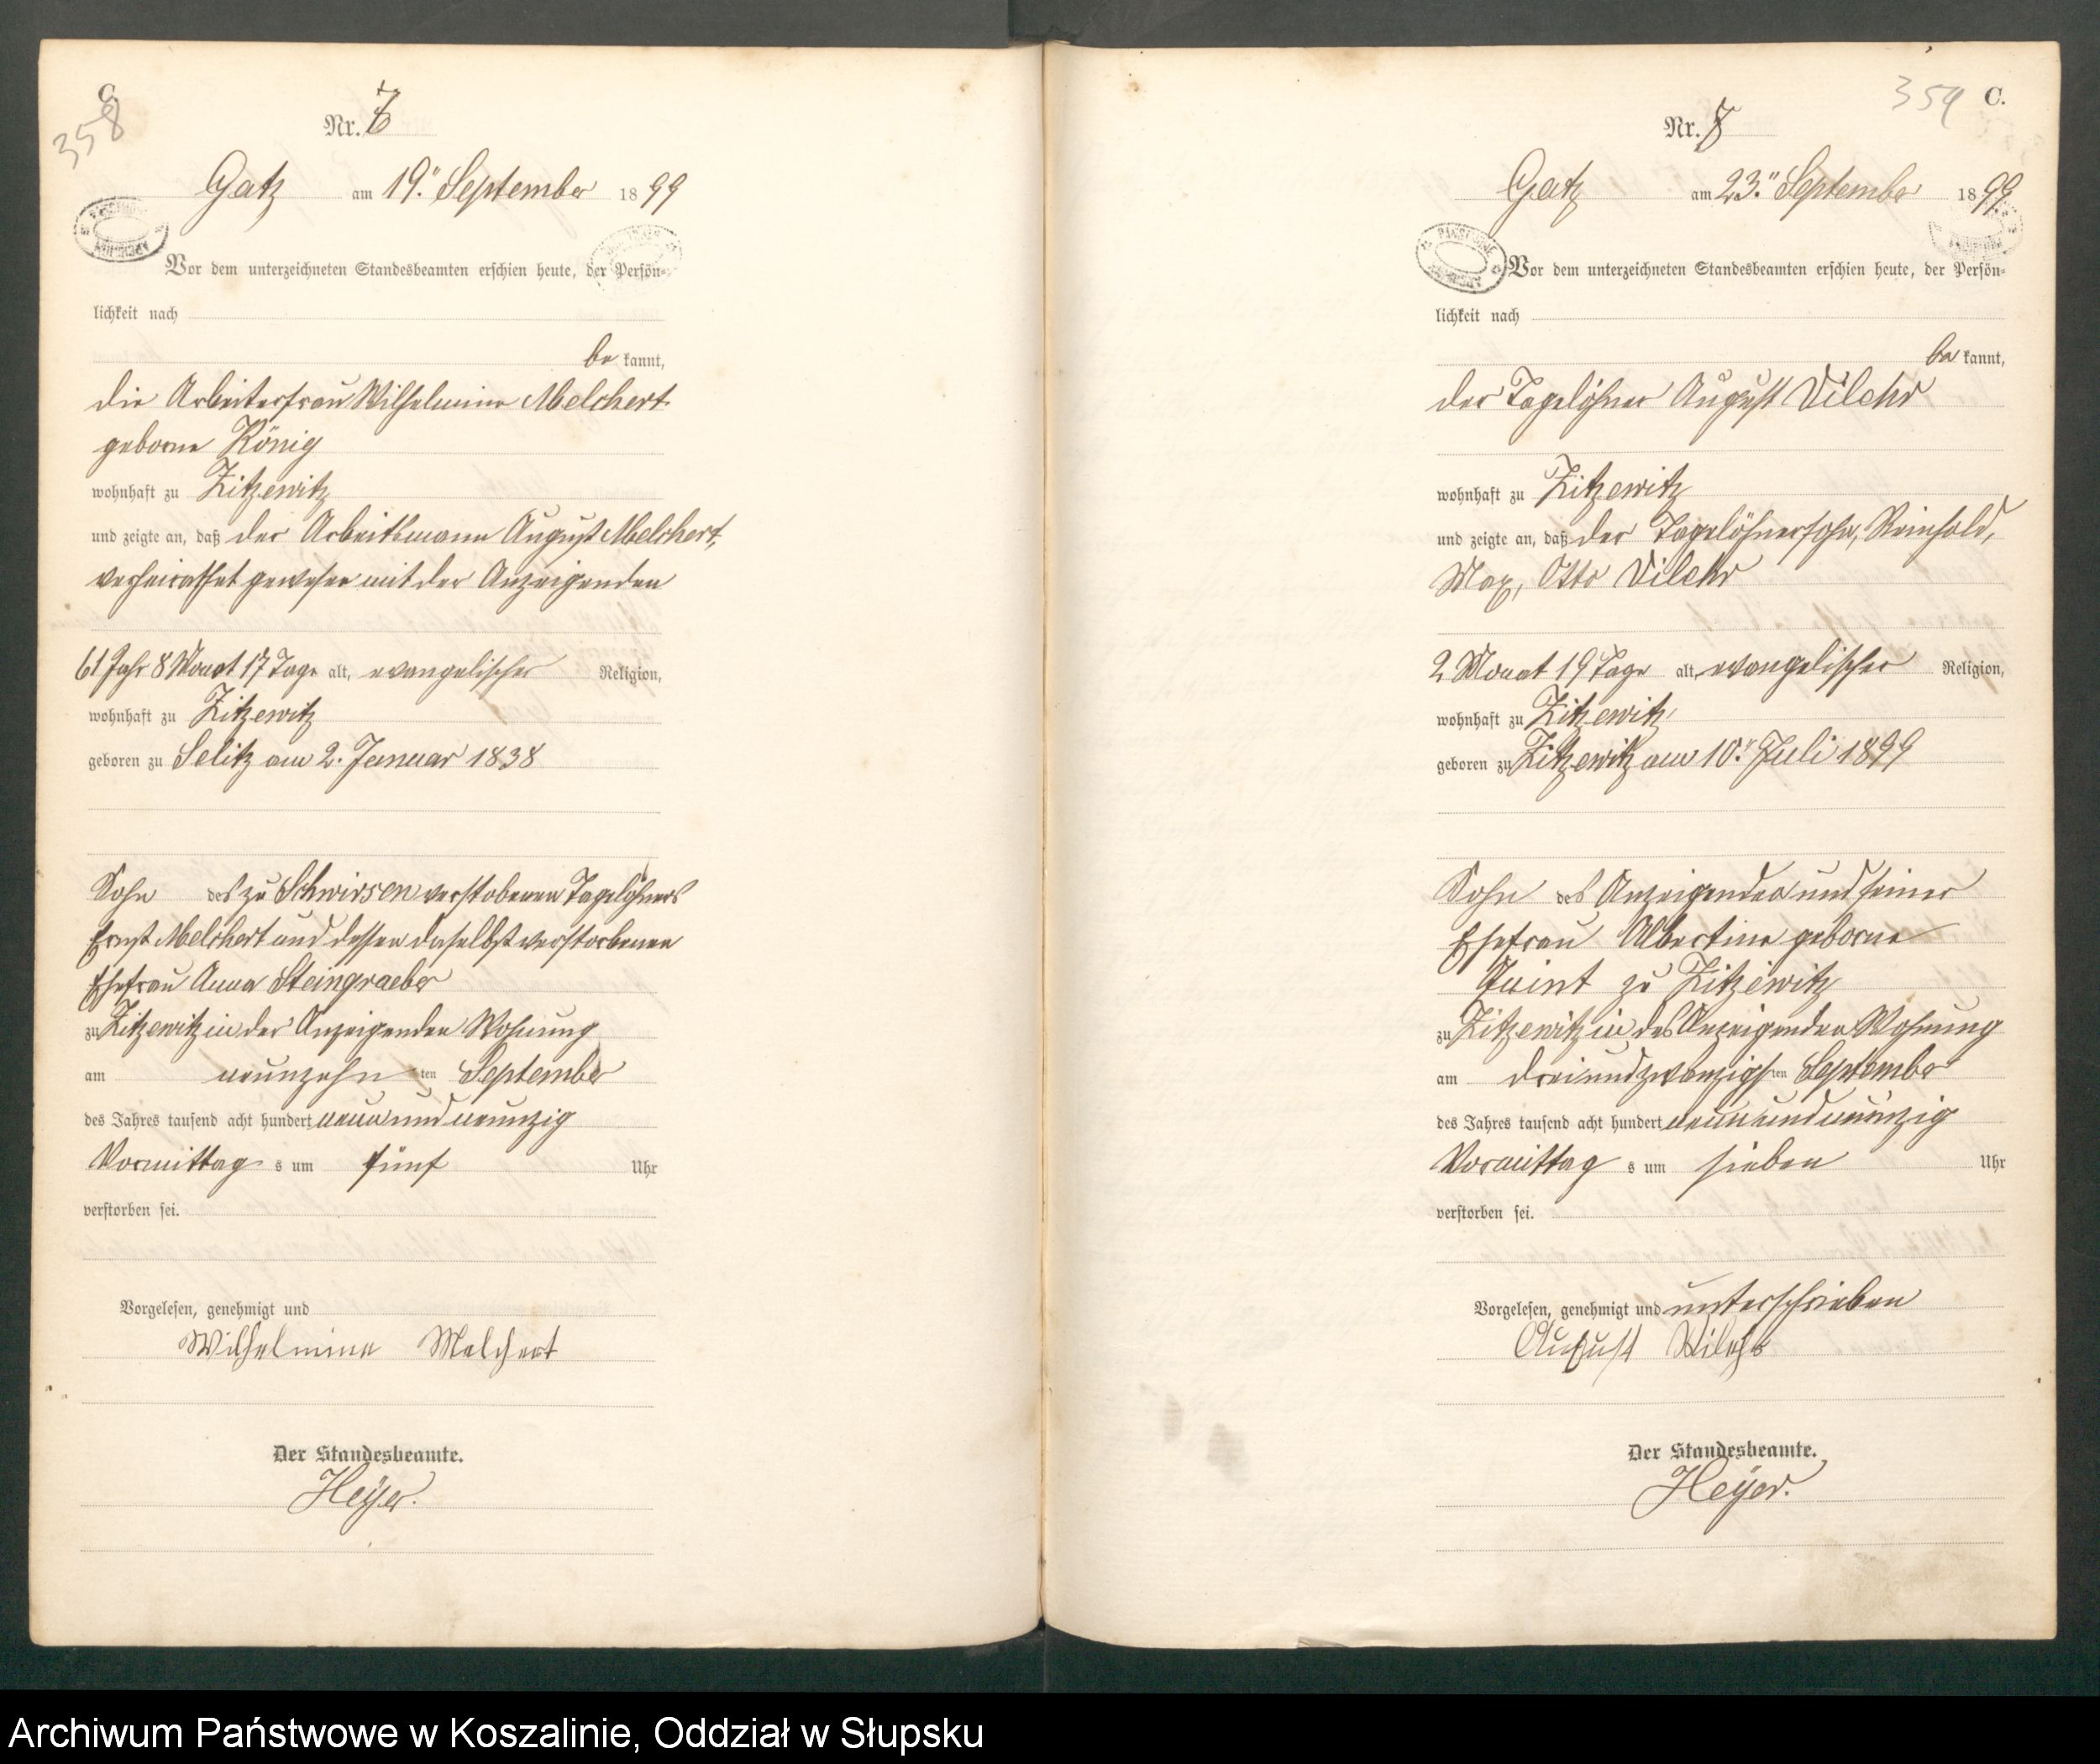 C.
358
Nr.
Gatz am 19. September 1899
Vor dem unterzeichneten Standesbeamten erschien heute, der Persön-
lichkeit nach
be kannt,
die Arbeiterfrau Wilhelmine Melchert
geborne König
wohnhaft zu Zitzewitz
und zeigte an, daß der Arbeitsmann August Melchert,
verheirathet gewesen mit der Anzeigenden
61 Jahr 8 Monat 17 Tage alt, evangelischer Religion,
wohnhaft zu Zitzewitz
geboren zu Selitz am 2. Januar 1838
Sohn des zu Schwirsen verstobenen Tagelöhners
Ernst Melchert und dessen daselbst verstorbenen
Ehefrau Anna Steingraeber
zu Zitzewitz in der Anzeigenden Wohnung
am neunzehn ten September
des Jahres tausend acht hundert neun und neunzig
Vormittag s um fünf Uhr
verstorben sei.
Vorgelesen, genehmigt und
Wilhelmine Melchert
Der Standesbeamte.
Heyer.
359 C.
Nr. 8
Gatz am 23. September 1899
Vor dem unterzeichneten Standesbeamten erschien heute, der Persön-
lichkeit nach
be kannt,
der Tagelöhner August Vilchr
wohnhaft zu Zitzewitz
und zeigte an, daß der Tagelöhnersohn, Reinhold,
Max, Otto Vilchr
2 Monat 19 Tage alt, evangelischer Religion,
wohnhaft zu Zitzewitz
geboren zu Zitzewitz am 10. Juli 1899
Sohn des Anzeigenden und seiner
Ehefrau Albertine geborne
Quint zu Zitzewitz
zu Zitzewitz in des Anzeigenden Wohnung
am dreiundzwanzigsten September
des Jahres tausend acht hundert neun und neunzig
Vormittag s um sieben Uhr
verstorben sei.
Vorgelesen, genehmigt und unterschrieben
August
Der Standesbeamte.
Heyer.
Archiwum Państwowe w Koszalinie, Oddział w Słupsku